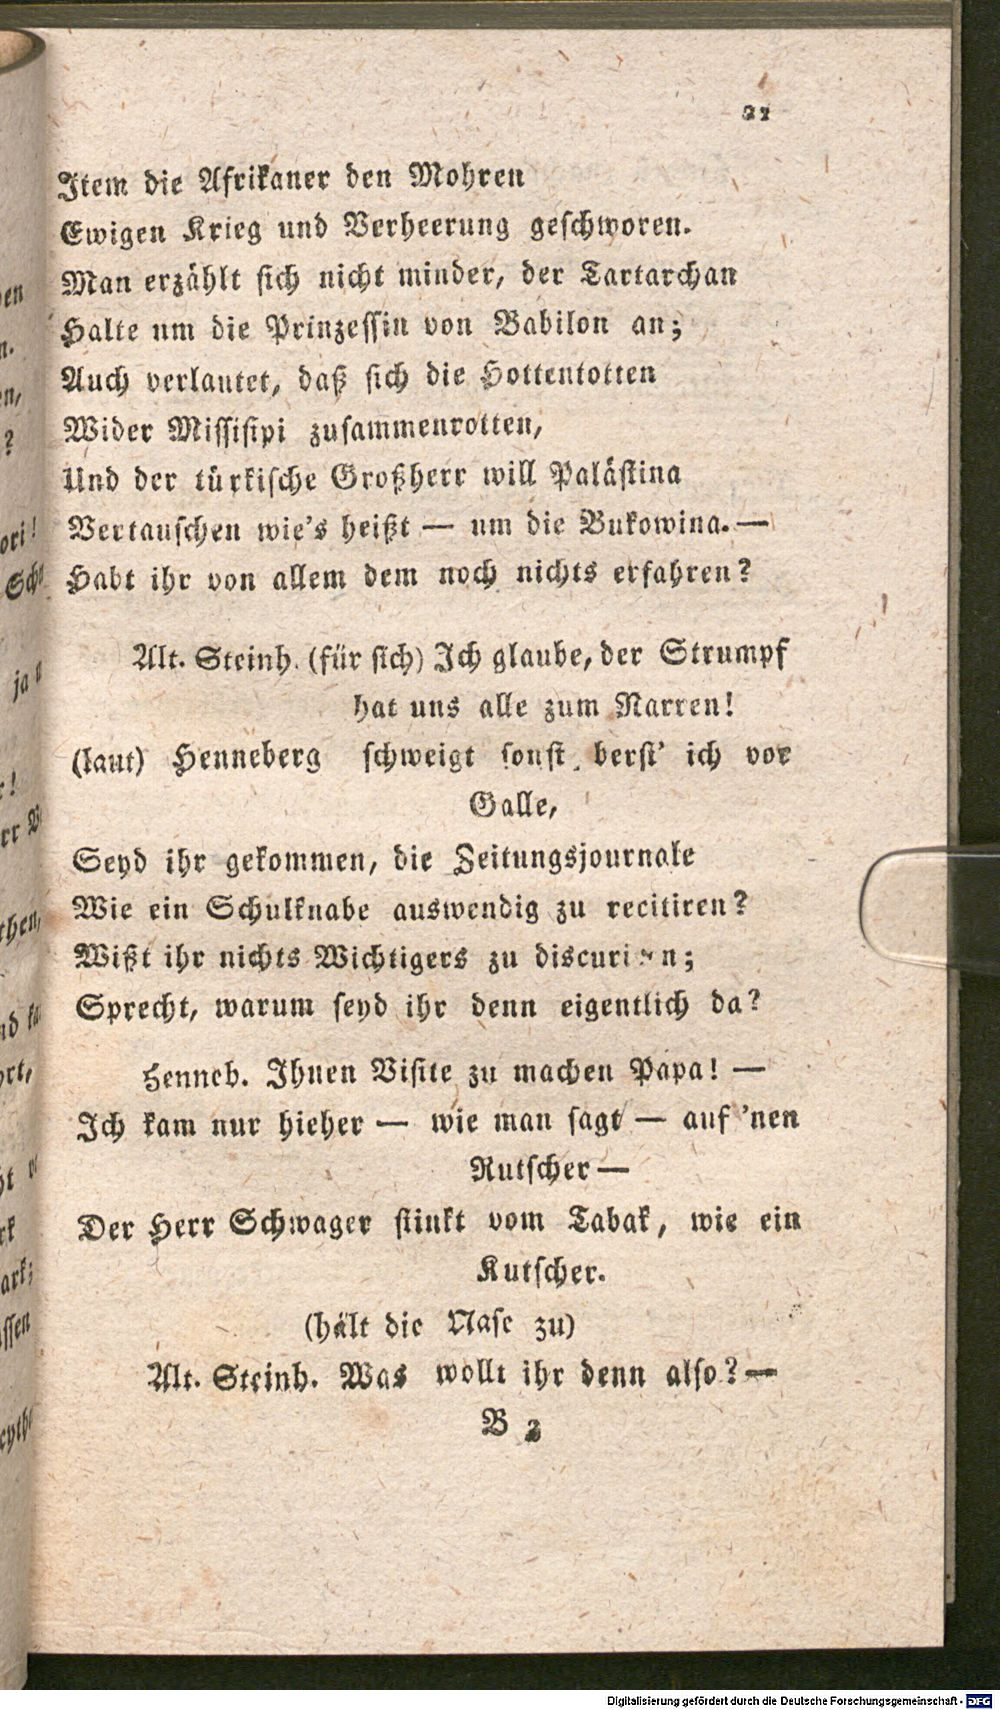 21
Item die Afrikaner den Mohren
Ewigen Krieg und Verheerung geschworen.
Man erzählt sich nicht minder, der Tartarchan
Halte um die Prinzessin von Babilon an;
Auch verlautet, daß sich die Hottentotten
Wider Missisipi zusammenrotten,
Und der türkische Großherr will Palästina
Vertauschen wie's heißt — um die Bukowina. —
Habt ihr von allem dem noch nichts erfahren?
Alt. Steinh. (für sich) Ich glaube, der Strumpf
hat uns alle zum Narren!
(laut) Henneberg schweigt sonst berst' ich vor
Galle,
Seyd ihr gekommen, die Zeitungsjournale
Wie ein Schulknabe auswendig zu recitiren?
Wißt ihr nichts Wichtigers zu
Sprecht, warum seyd ihr denn eigentlich da?
Henneb. Ihnen Visite zu machen Papa! —
Ich kam nur hieher — wie man sagt — auf 'nen
Rutscher —
Der Herr Schwager stinkt vom Tabak, wie ein
Kutscher.
(hält die Nase zu)
Alt. Steinh. Was wollt ihr denn also? —
B 3
Digitalisierung gefördert durch die Deutsche Forschungsgemeinschaft - DFG